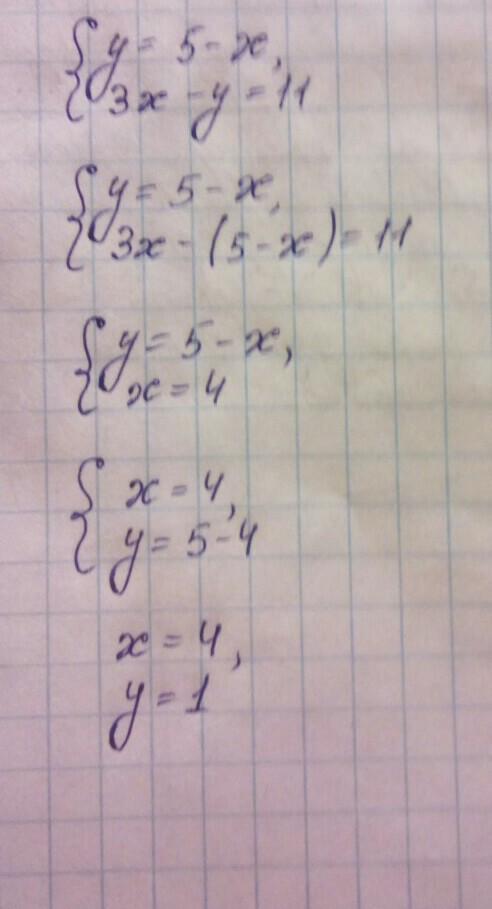 y = 5 - x,
3x - y = 11
y = 5 - x,
3x - (5 - x) = 11
y = 5 - x,
x = 4
x = 4,
y = 5 - 4
x = 4,
y = 1